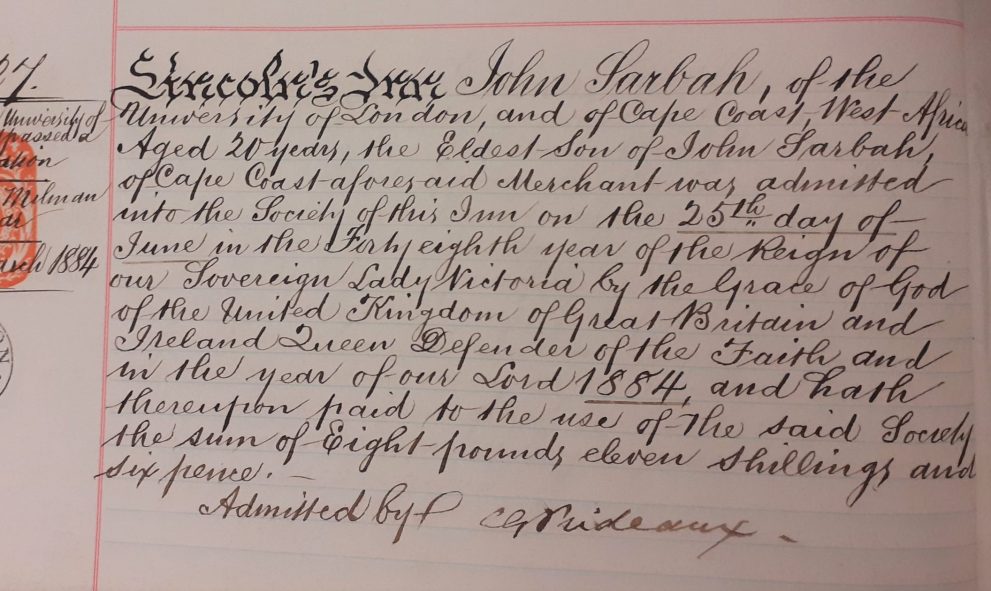 27.
University of
passed a
ation
Milman
ar
arch 1884
ON
Lincoln's Inn John Sarbah, of the
University of London, and of Cape Coast, West Africa
Aged 20 years, the Eldest Son of John Sarbah,
of Cape Coast aforesaid Merchant was admitted
into the Society of this Inn on the 25th day of
June in the Forty eighth year of the Reign of
our Sovereign Lady Victoria by the Grace of God
of the United Kingdom of Great Britain and
Ireland Queen Defender of the Faith and
in the year of our Lord 1884, and hath
thereupon paid to the use of the said Society
the sum of Eight pounds eleven shillings and
six pence. —
Admitted by CG Prideaux. -